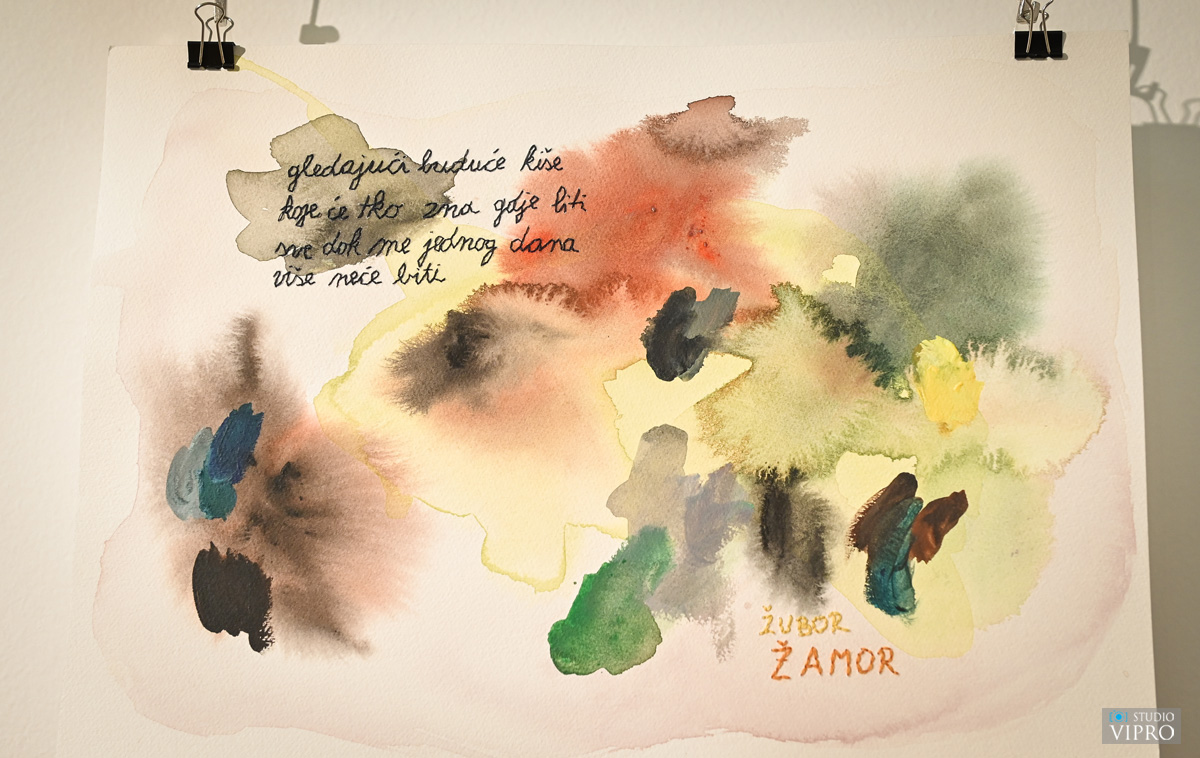 gledajući buduće kiše
koje će tko zna gdje biti
sve dok me jednog dana
više neće biti
ŽUBOR
ŽAMOR
STUDIO
VIPRO